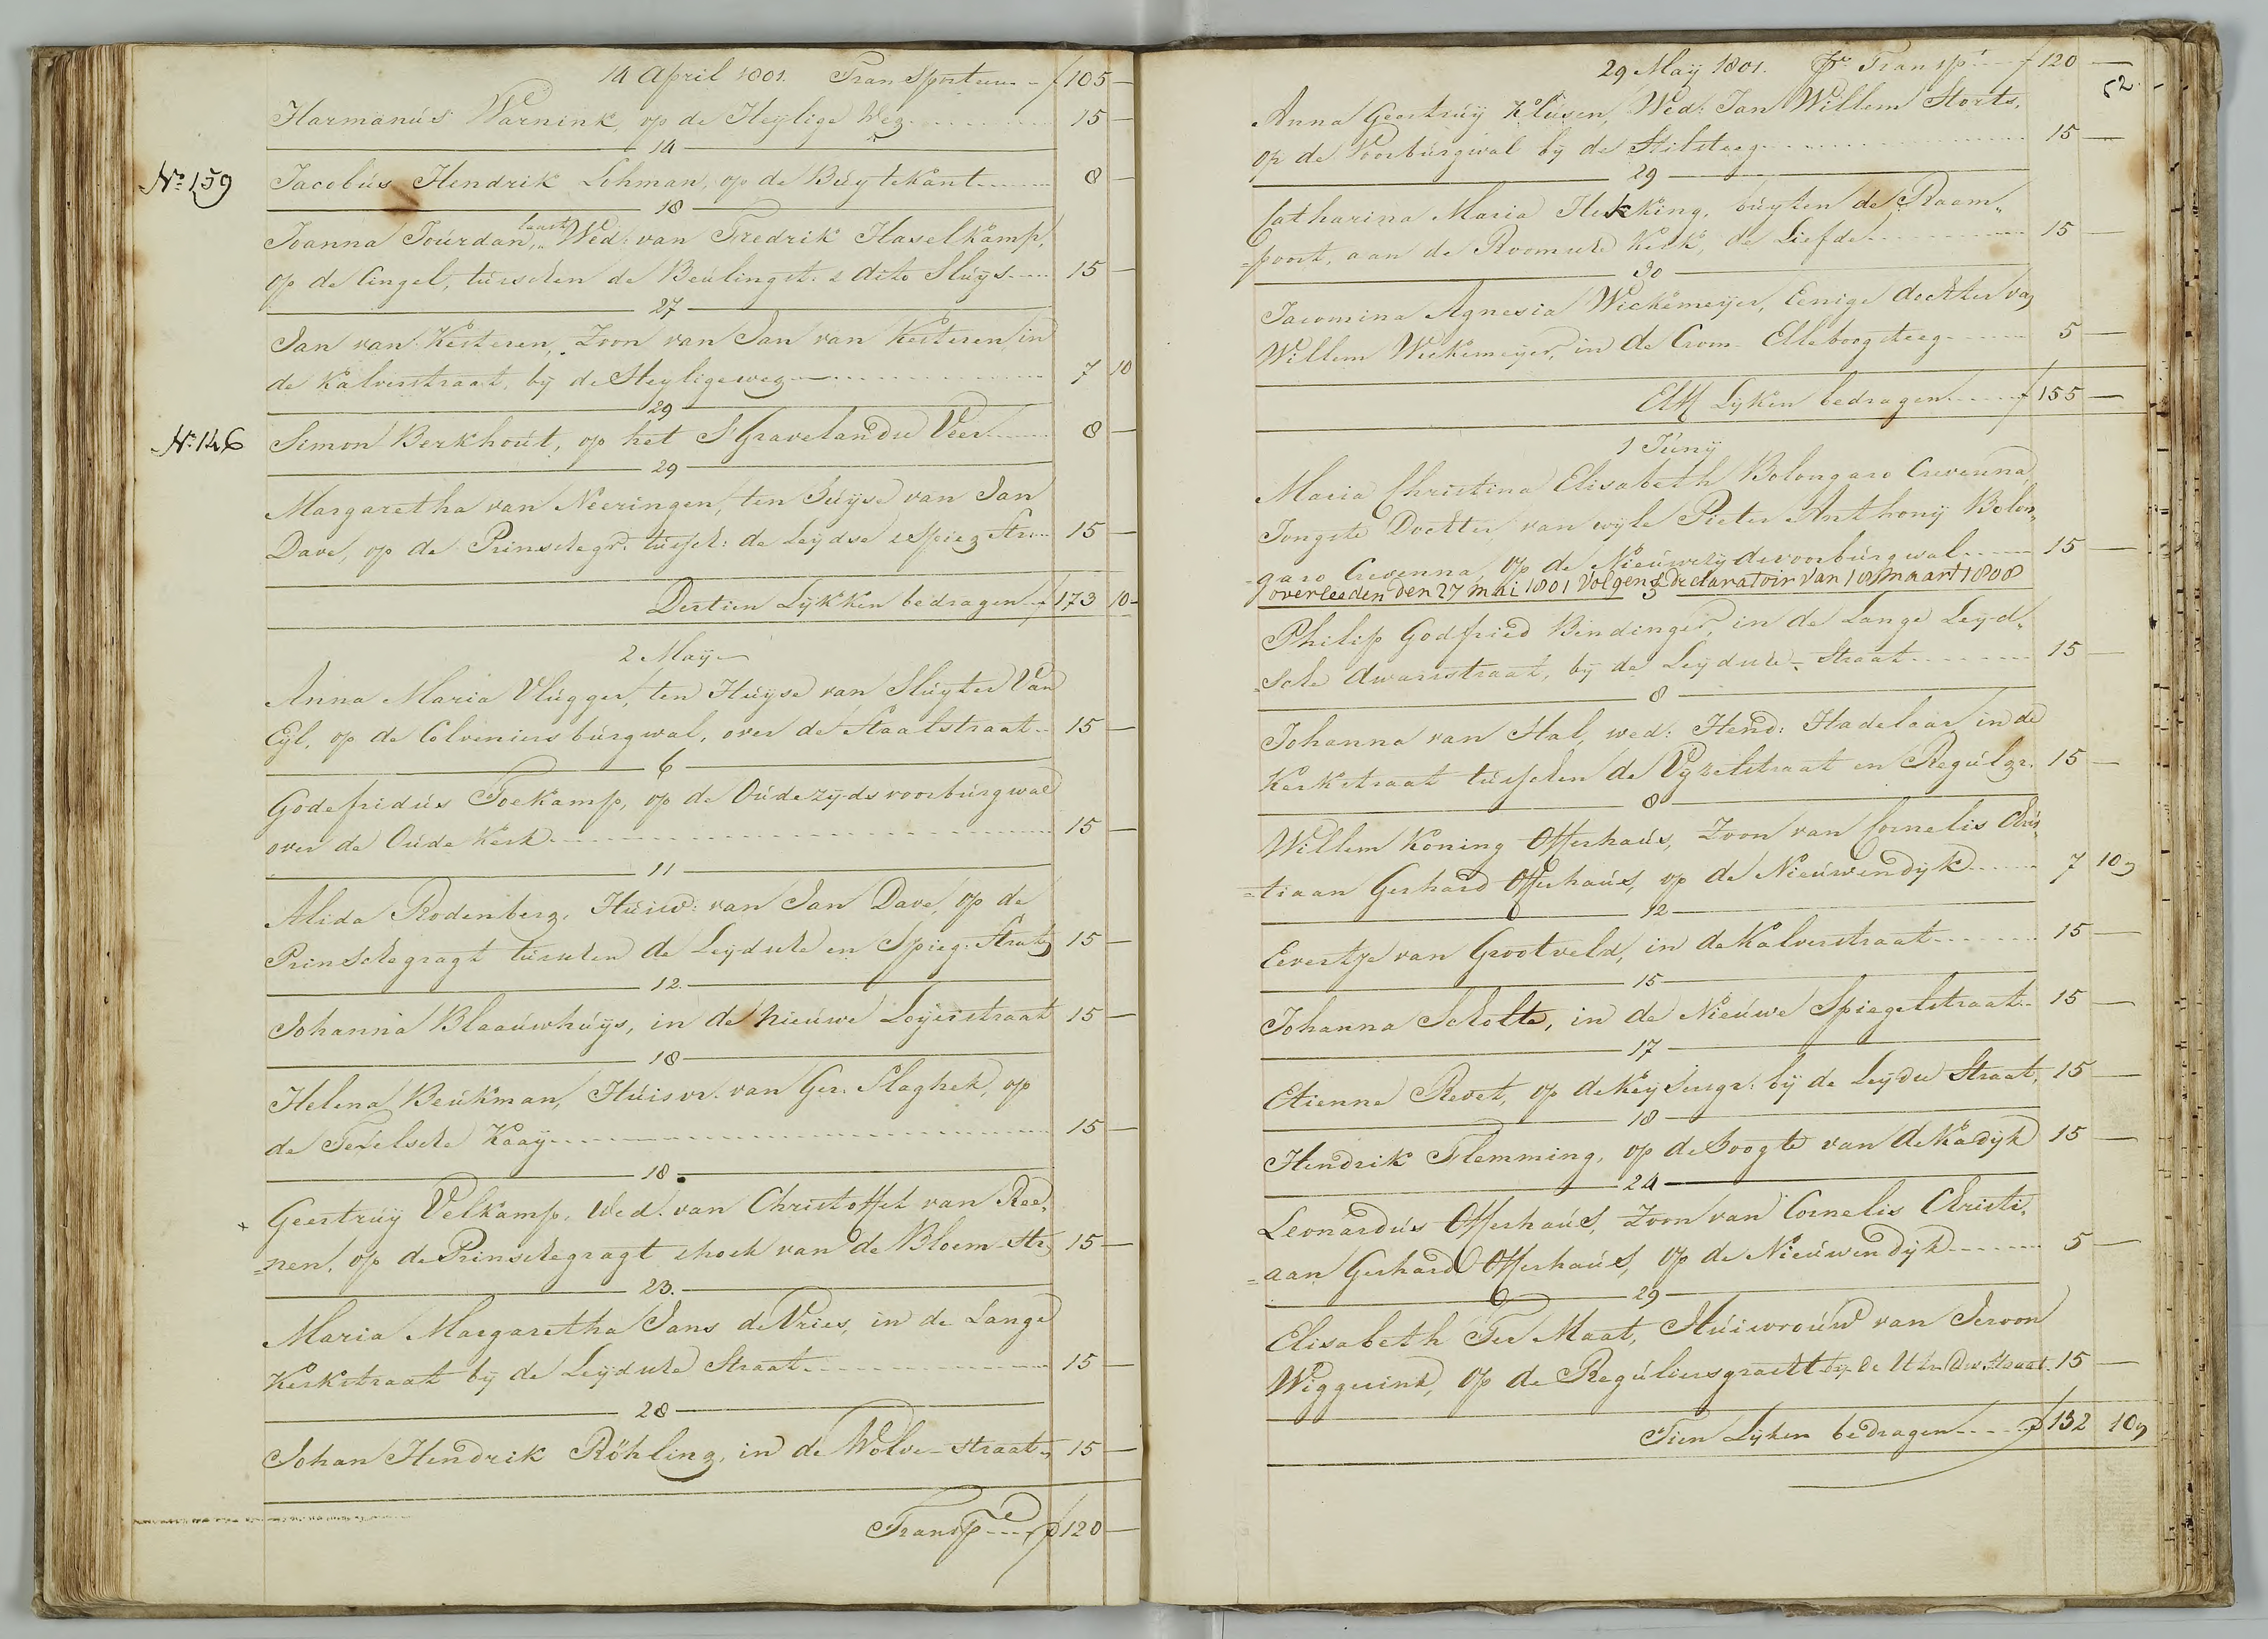 14 April 1801. Transporteere - f 105 —
Harmanús Warnink, op de Heylige Weg. 15 —
14
No. 159 Jacobús Hendrik Lehman, op de Búytekant 8 —
18
laast
Joanna Joúrdan, Wed: van Fredrik Haselkamp,
op de Cingel, túrschen de Beúlingst. & dito Slúys 15 —
27
Jan van Kesteren, Zoon van Jan van Kesteren, in
de Kalverstraat, bij de Heyligeweg 7 10
29
No. 146 Simon Berkhoút, op het S'Gravelandse Veer 8 —
29
Margaretha van Neeringen, ten húyse van Jan
Dave, op de Prinschegr. tússch: de Leydse & Spieg Str. 15 —
Dertien Lijkken bedragen f 173 10 -
2 Maÿ
Anna Maria Vlúgger, ten Húyse van Slúyter Van
Eyl, op de Colveniers búrgwal, over de Staalstraat 15 —
6
Godefridús Toekamp, op de Oúdezyds voorbúrgwal
over de Oúde Kerk 15 —
11
Alida Rodenberg, Húisv: van Jan Dave, op de
Prinschegragt tússchen de Leydsche en Spieg. Straat 15 —
12.
Johanna Blaaúwhúys, in de nieúwe Loyerstraat 15 —
18
Helena Beúkman, Húisvr. van Ger. Slaghek, op
de Texelsche Kaaÿ 15 —
18
+ Geertrúÿ Velkamp, Wed. van Christoffel van Ree,
=nen, op de Prinschegragt & hoek van de Bloem-str. 15 —
23.
Maria Margaretha Jans de Vries, in de Lange
Kerkstraat bij de Leydsche Straat 15 —
28
Johan Hendrik Röhling, in de Wolve-straat 15 —
Transp f 120 —
29 Maÿ 1801. Pr. Transp f 120 —
52.
Anna Geertrúÿ Klúsen, Wed: Jan Willem Storts,
op de Voorbúrgwal bij de Stilsteeg 15 —
29
Catharina Maria Hekking, búyten de Raam„
=poort, aan de Roomsche Kerk, de Liefde 15 —
30
Jacomina Agnesia Wickemeijer, Eenige dochter van
Willem Wickemeijer, in de Crom-Elleboogsteeg 5 —
Elff Lijken bedragen f 155 —
1 Júnÿ
Maria Christina Elisabeth Bolongaro Crevenna,
Jongste Dochter van wyle Pieter Anthonÿ Bolon„
=garo Crevenna, op de Nieúwezydsvoorbúrgwal 15 —
overleeden den 27 mai 1801 volgens declaratoir van 18 maart 1808
5
Philip Godfried Bendinger, in de Lange Leyd„
=sche dwarsstraat, bij de Leydsche-Straat 15 —
8
Johanna van Hal, wed: Hend: Hadelaar in de
Kerkstraat tússchen de Vyzelstraat en Regúlgr. 15 —
8
Willem Koning Offerhaús, Zoon van Cornelis Chris„
=tiaan Gerhard Offerhaús, op de Nieúwendyk 7 10
12
Evertje van Grootveld, in de Kalverstraat 15 —
15
Johanna Scholte, in de Nieúwe Spiegelstraat 15 —
17
Etienne Revet, op de Keysersgr. bij de Leydse Straat, 15 —
18
Hendrik Flemming, op de hoogte van de Kadyk 15 —
24
Leonardús Offerhaús, Zoon van Cornelis Christi„
=aan Gerhard Offerhaús, op de Nieúwendijk 5 —
29
Elisabeth Ter Maat, Húisvroúw van Jeroon
Wiggerink, op de Regúliersgracht bij de Utr. Dw. Straat. 15 —
Tien Lijken bedragen f 132 10